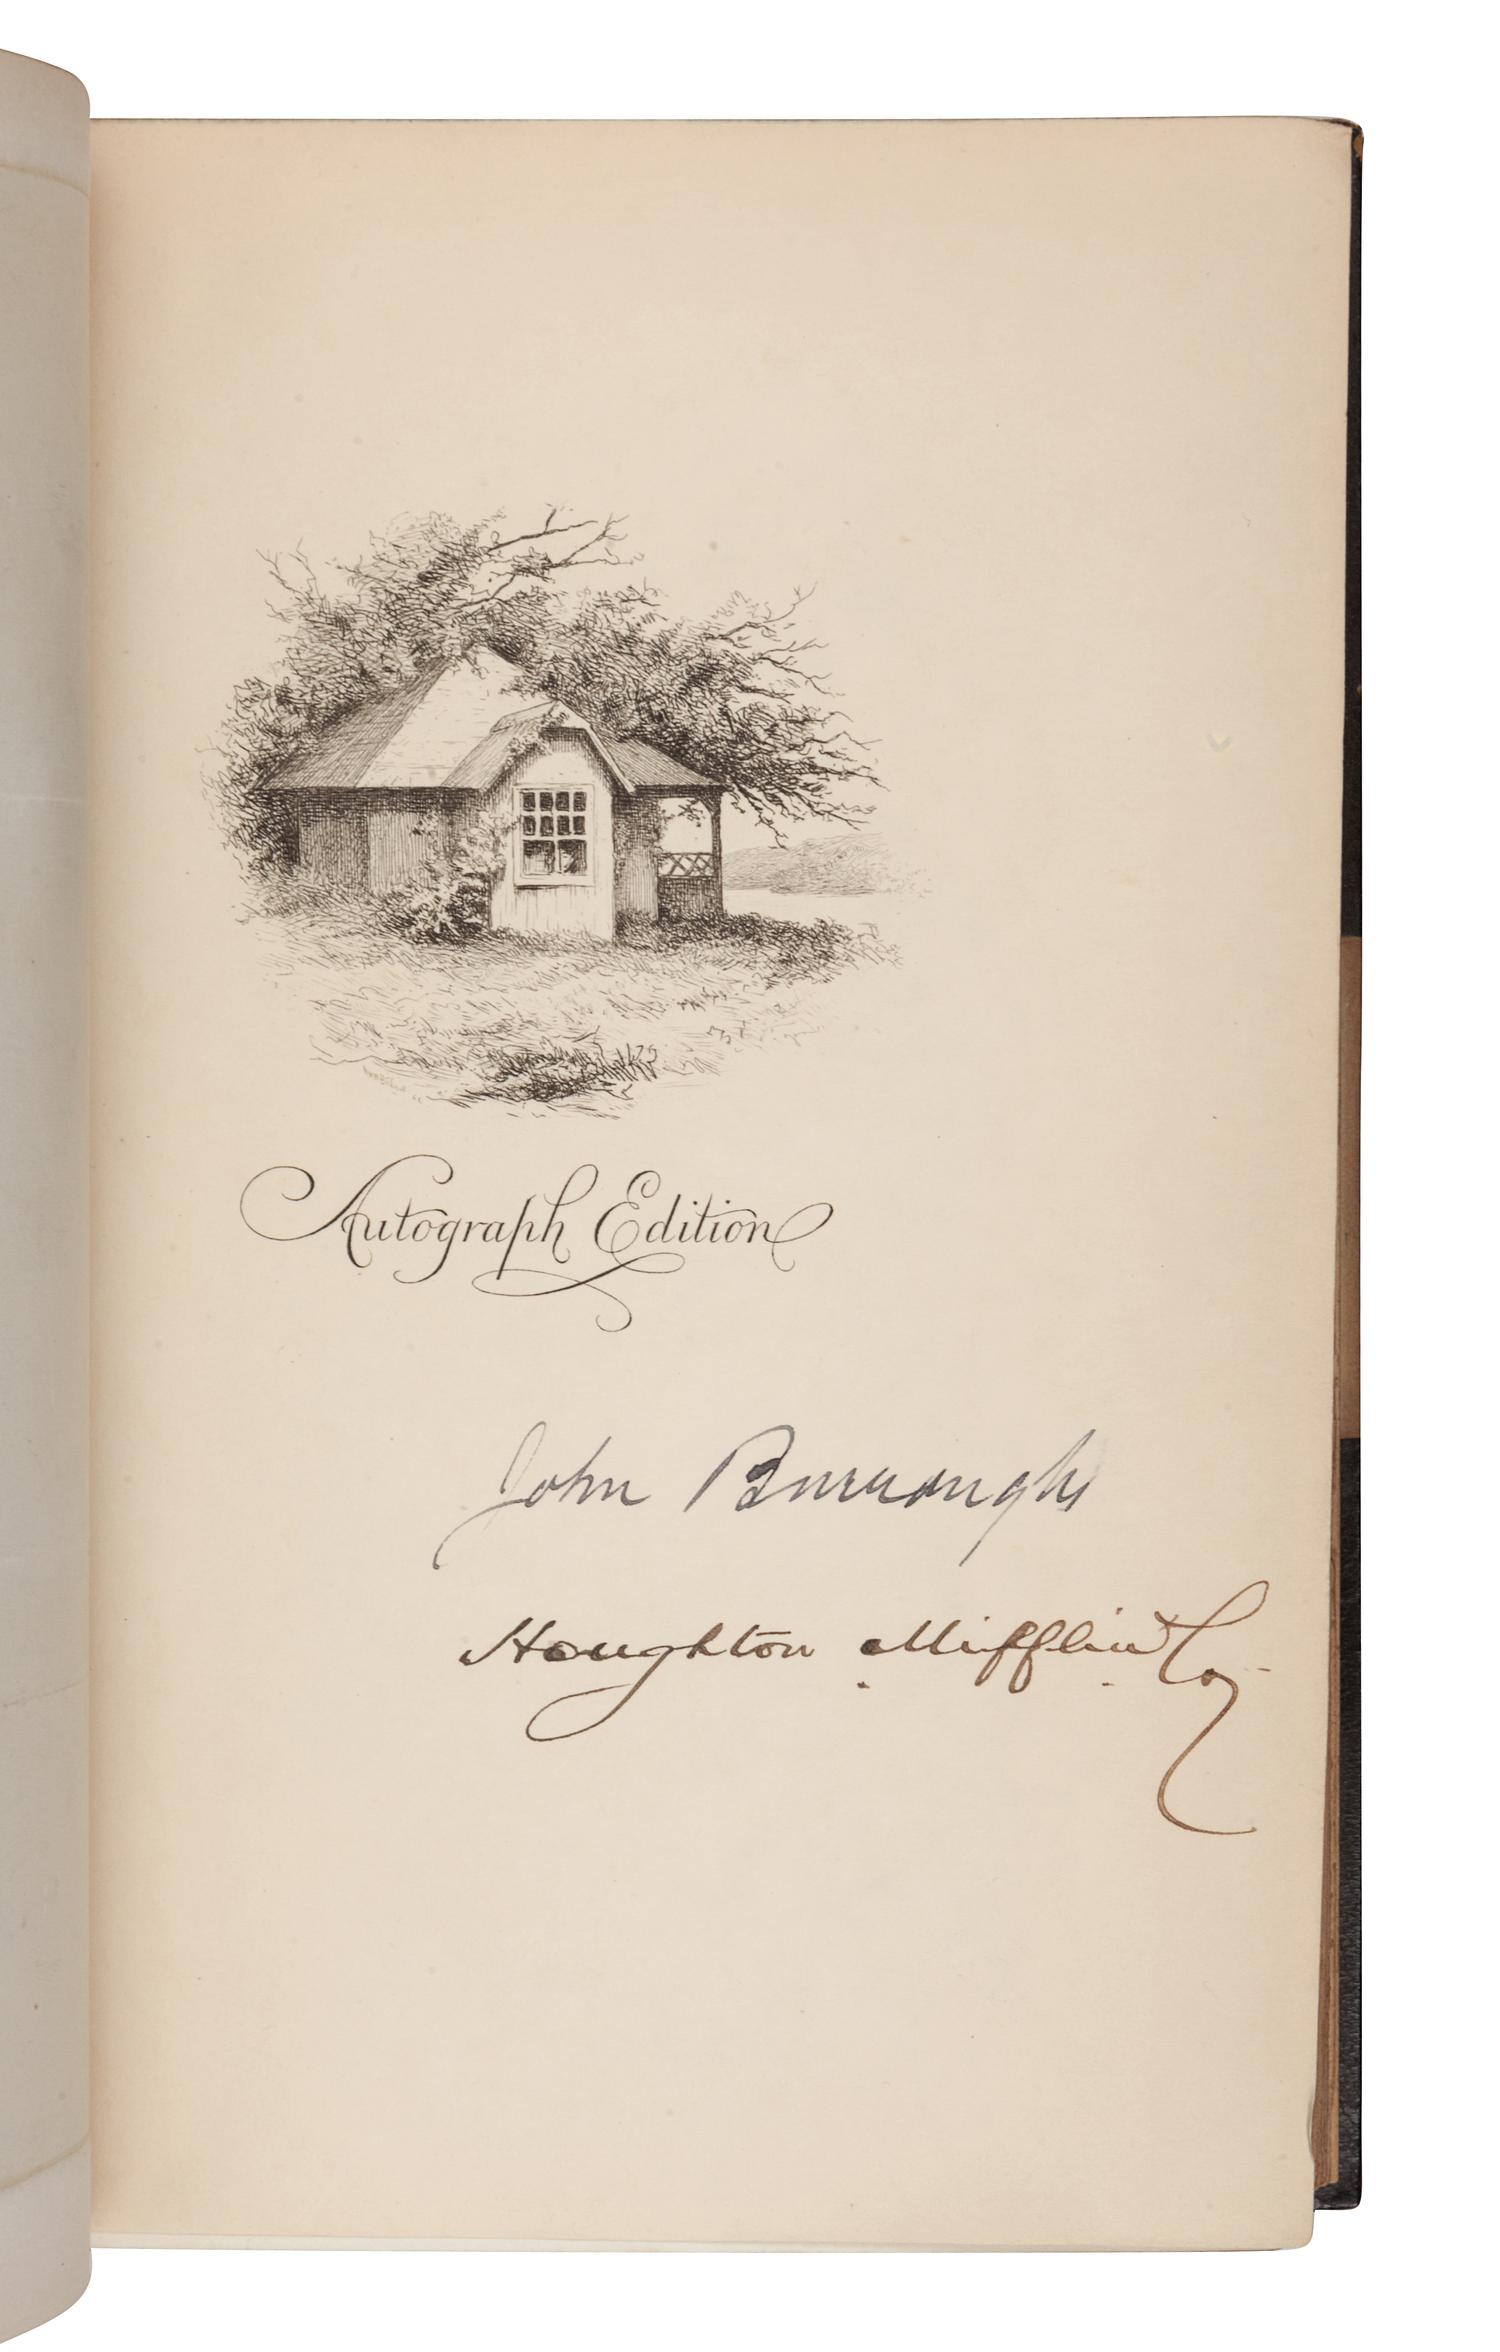 Autograph Edition
John Burroughs
Houghton Mifflin Co.